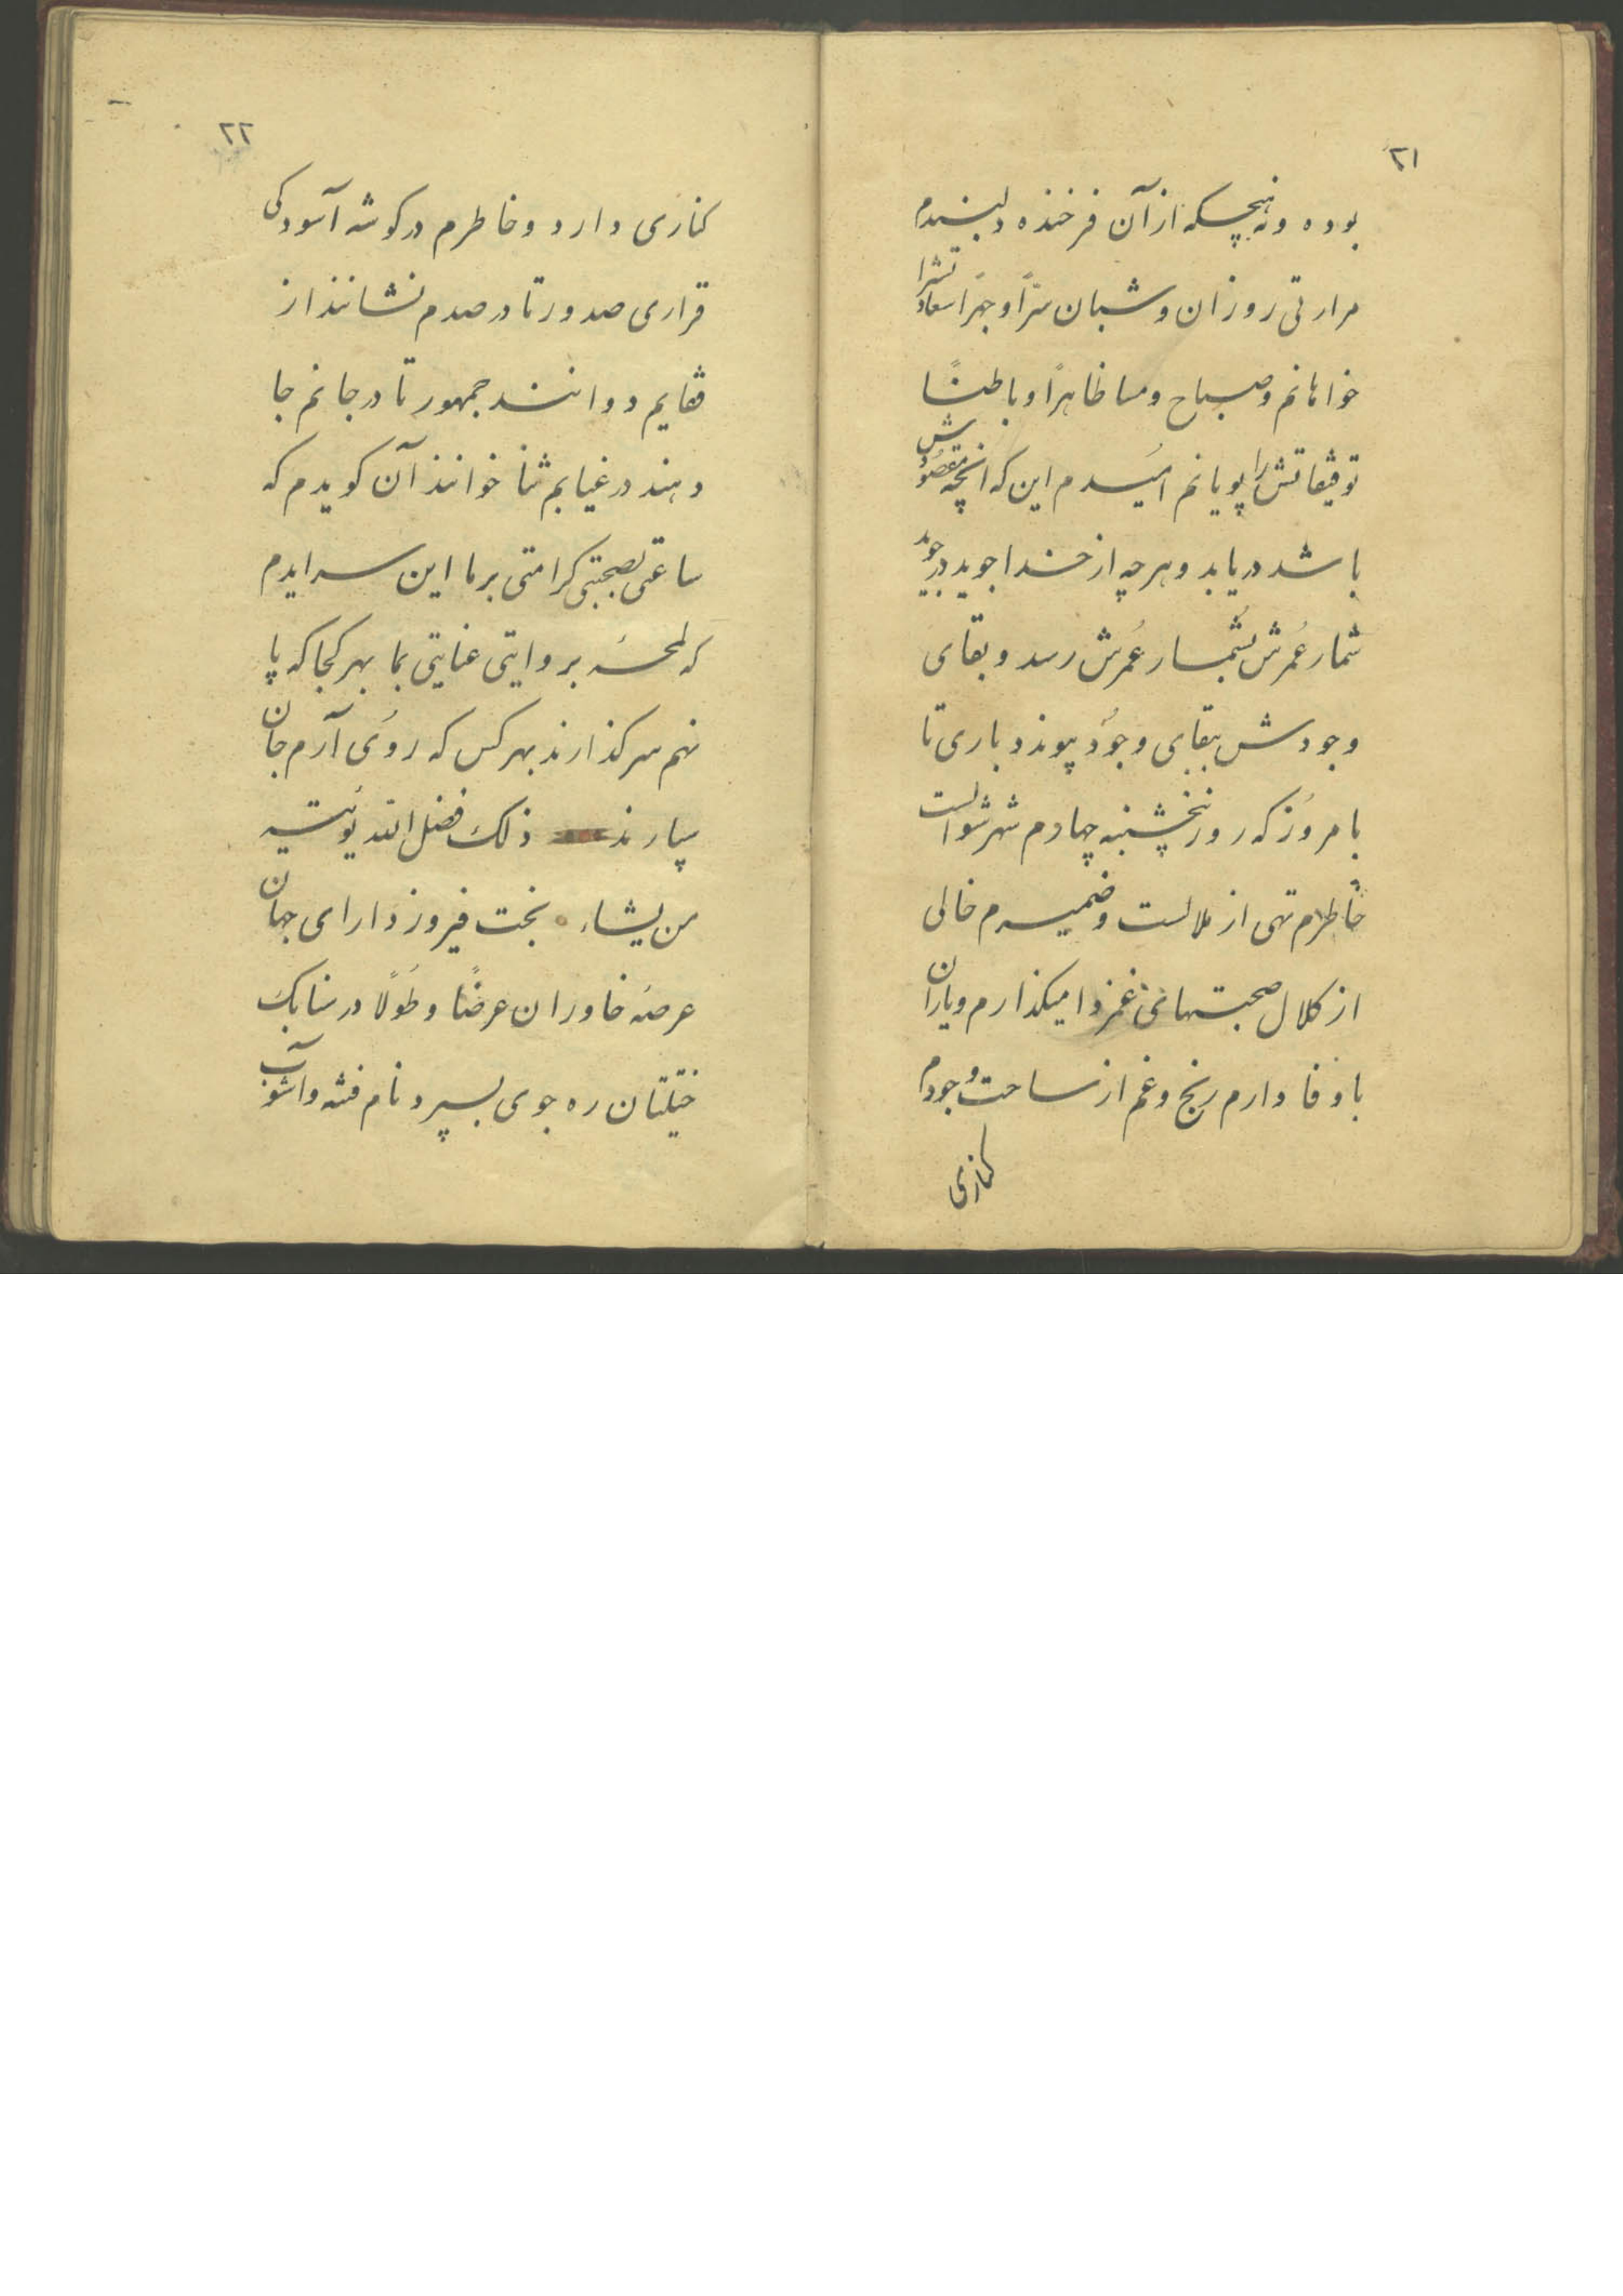 ۲۱
بوده و نه هیچکه از آن فرخنده دلبندم
مرارتی روزان و شبان سرّاً و جهراً سعادتش را
خواهانم و صباح و مسا ظاهراً و باطناً
توفیقاتش را پویانم امیدم این که آنچه مقصودش
باشد دریابد و هرچه از خدا جوید در جوید
شمار عُمرش بشمار عُمرش رسد و بقای
وجودش ببقای وجود پیوندد باری تا
بامروز که روز پنجشنبه چهارم شهر شوالست
خاطرم تهی از ملالست و ضمیرم خالی
از کلال صحبتهای غمزدا میکذارم و یاران
با وفا دارم رنج و غم از ساحت وجودم
کناری
۲۲
کناری دارد و خاطرم در کوشه آسودکی
قراری صدور تا در صدرم نشانند از
قفایم دوانند جمهور تا در جانم جا
دهند در غیابم ثنا خوانند آن کویدم که
ساعتی بصحبتی کرامتی بر ما این سرایدم
که لمحهٔ بروایتی عنایتی بما بهر کجا که پا
نهم سر کذارند بهر کس که روی آرم جان
سپارند ذلک فضل الله یؤتیه
من یشاء بخت فیروز دارای جهان
عرصهٔ خاوران عرضاً و طولاً در سنابک
ختلیتان ره جوی بسپرد نام فتنه و آشوب